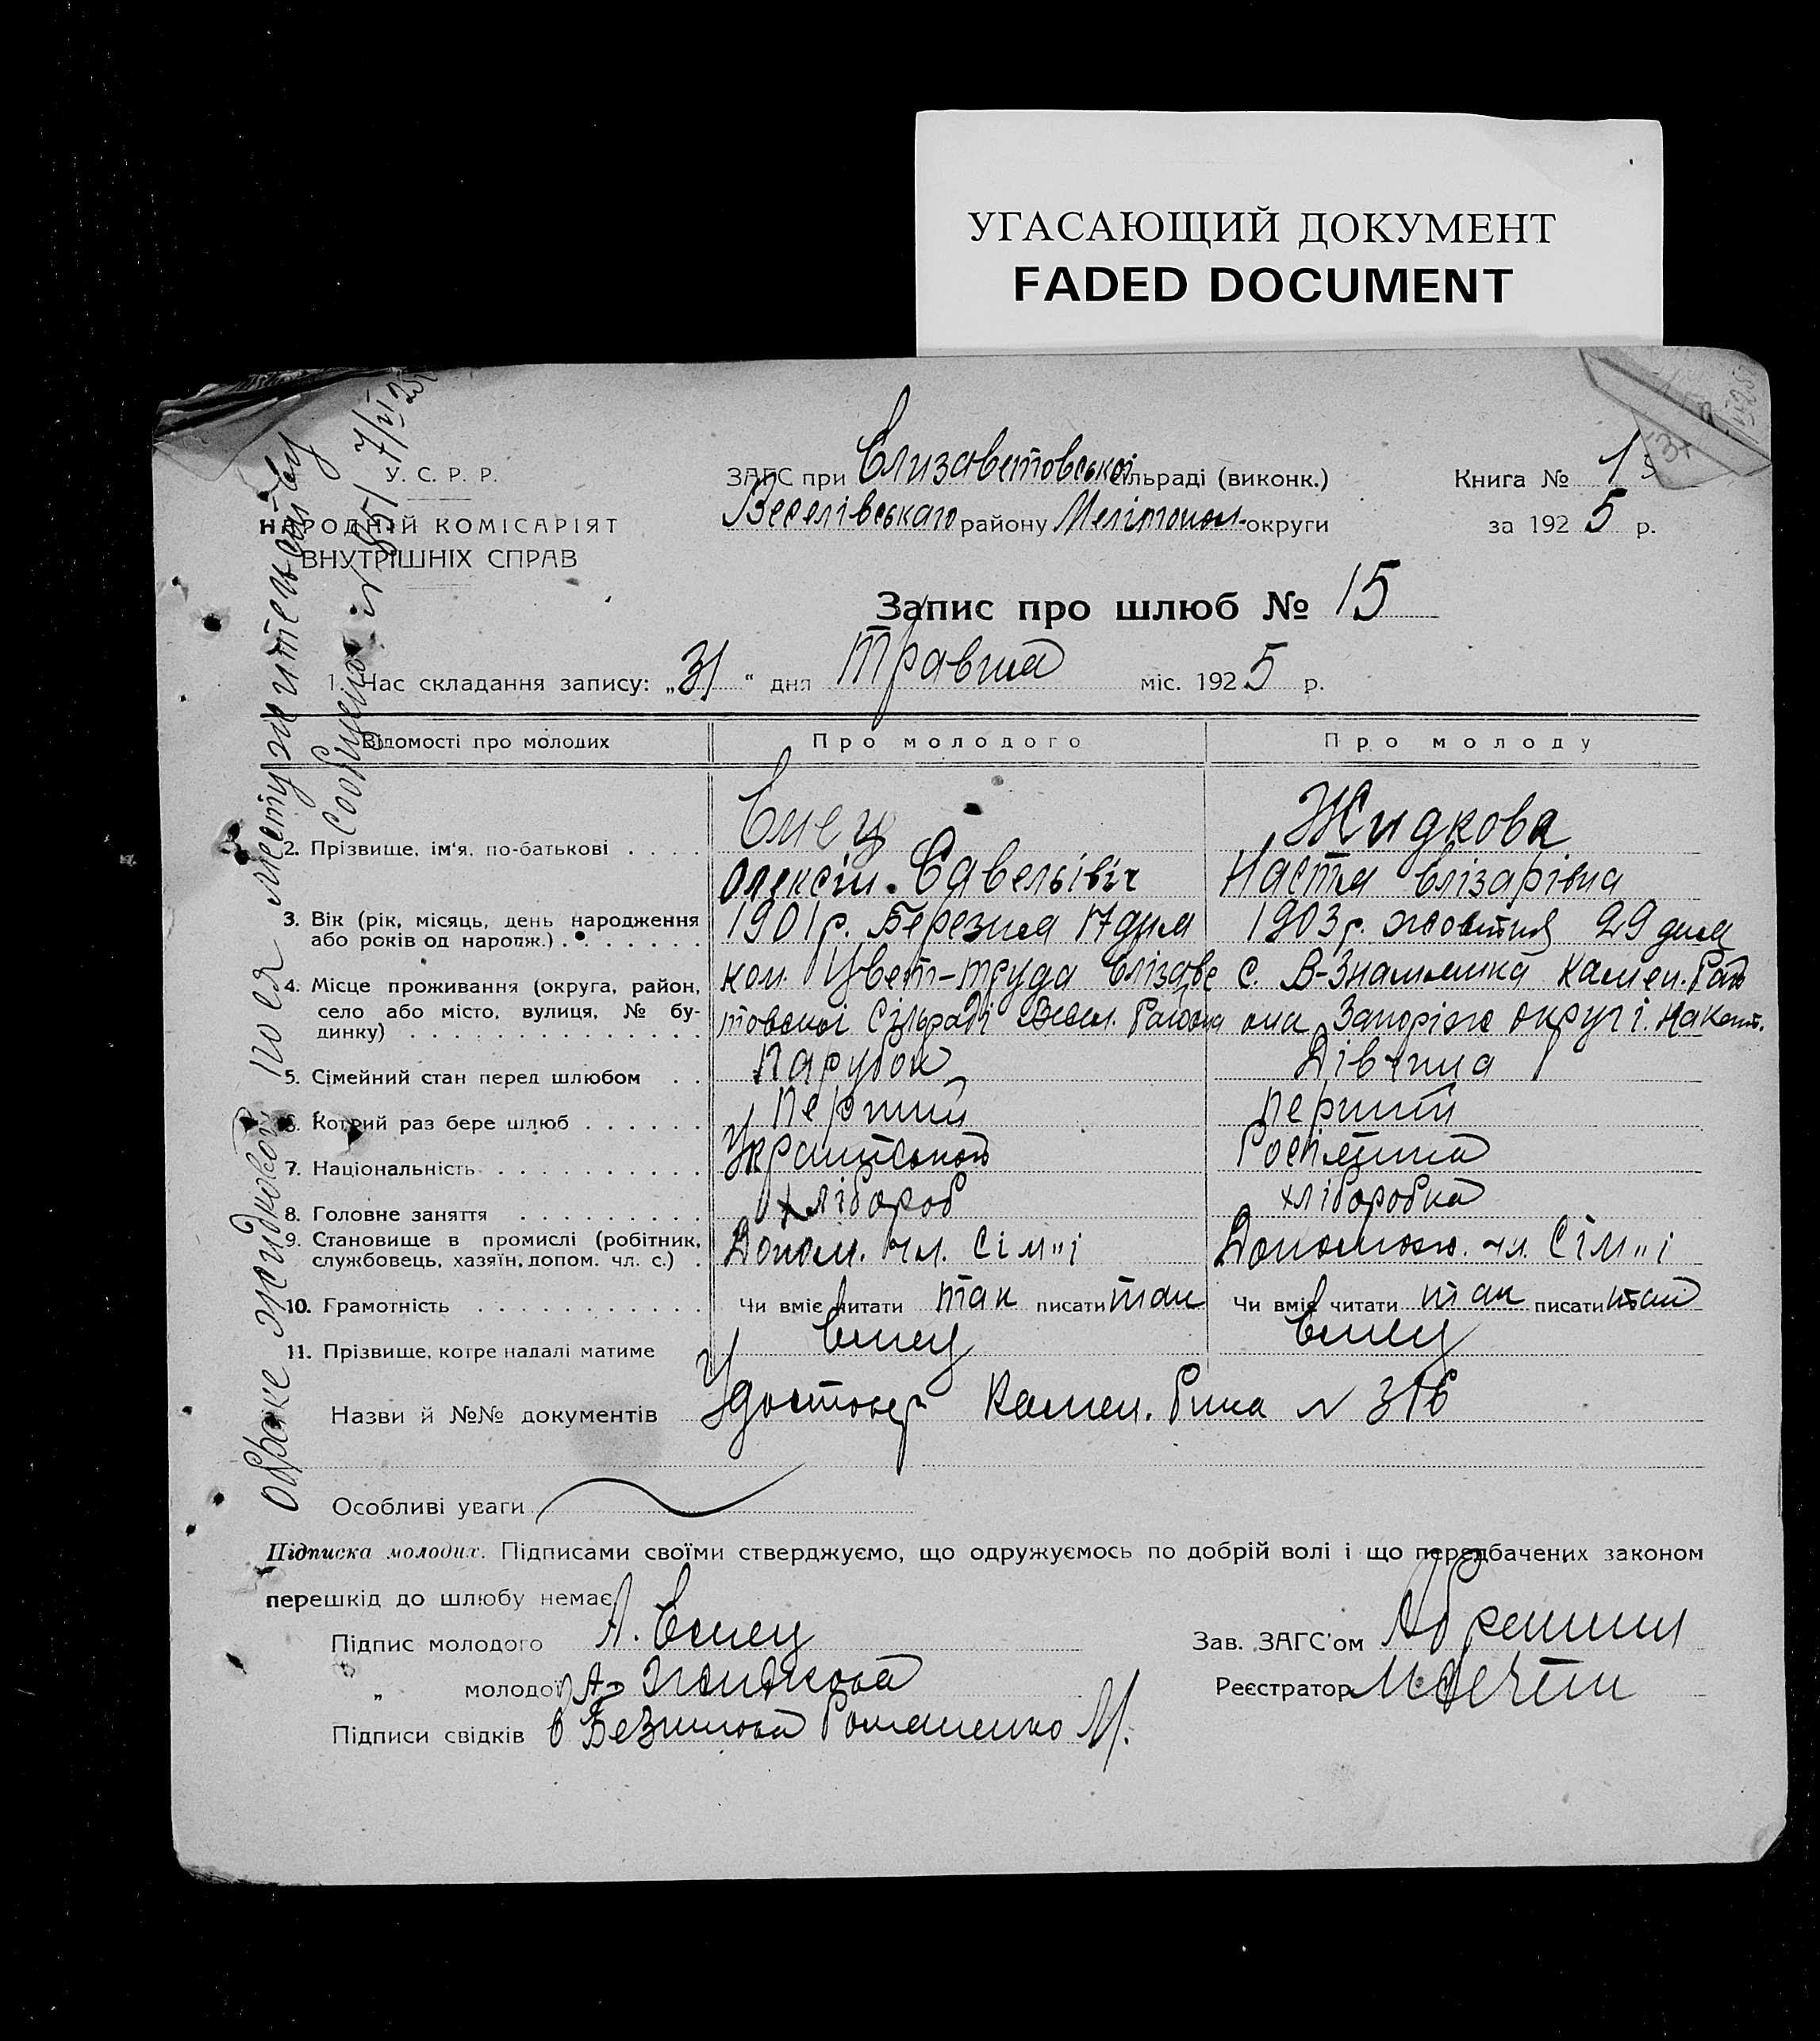 УГАСАЮЩИЙ ДОКУМЕНТ
FADED DOCUMENT
У. С. Р. Р.
НАРОДНІЙ КОМІСАРІЯТ
ВНУТРІШНІХ СПРАВ
ЗАГС при Єлизаветовськой сільраді (виконк.)
Веселівськаго району Мелітопол. округи
Книга № 1
за 1925 р.
Запис про шлюб № 15
1. Час складання запису: „31“ дня Травня міс. 1925 р.
Відомості про молодих Про молодого Про молоду
2. Прізвище, ім'я, по-батькові . . . . Ємец Жидкова
Олексій Савельівіч Настя Єлізарівна
3. Вік (рік, місяць, день народження 1901 р. Березня 17 дня 1903 р. жовтня 29 дня
або років од нарорж.) . . . . . . .
4. Місце проживання (округа, район, кол. Цвет-труда Єлізаве с. В-Знаменка Камен. Рай
село або місто, вулиця, № бу- товської Сільраді Весел. Района она Запоріж округі.
динку) . . . . . . . . . . . . . .
5. Сімейний стан перед шлюбом . . Парубок Дівчина
6. Котрий раз бере шлюб . . . . . . Перший перший
7. Національність . . . . . . . . . . Росіянка
8. Головне заняття . . . . . . . . . хлібороб хліборобка
9. Становище в промислі (робітник, Допом. чл. Сім"і Допомож. чл. Сім"і
службовець, хазяїн, допом. чл. с.) .
10. Грамотність . . . . . . . . . . . Чи вміє читати так писати так Чи вміє читати так писати так
11. Прізвище, котре надалі матиме Ємец Ємец
Назви й №№ документів Удостовер Камен. Рика № 316
Особливі уваги
Підписка молодих. Підписами своїми стверджуємо, що одружуємось по добрій волі і що передбачених законом
перешкід до шлюбу немає.
Підпис молодого А. Ємец
„ молодої А. Жидкова
Підписи свідків Романенко М.
Зав. ЗАГС'ом
Реєстратор
О браке Жидковой по ея местужительству
Сообщено № 85/ 7/VI 25